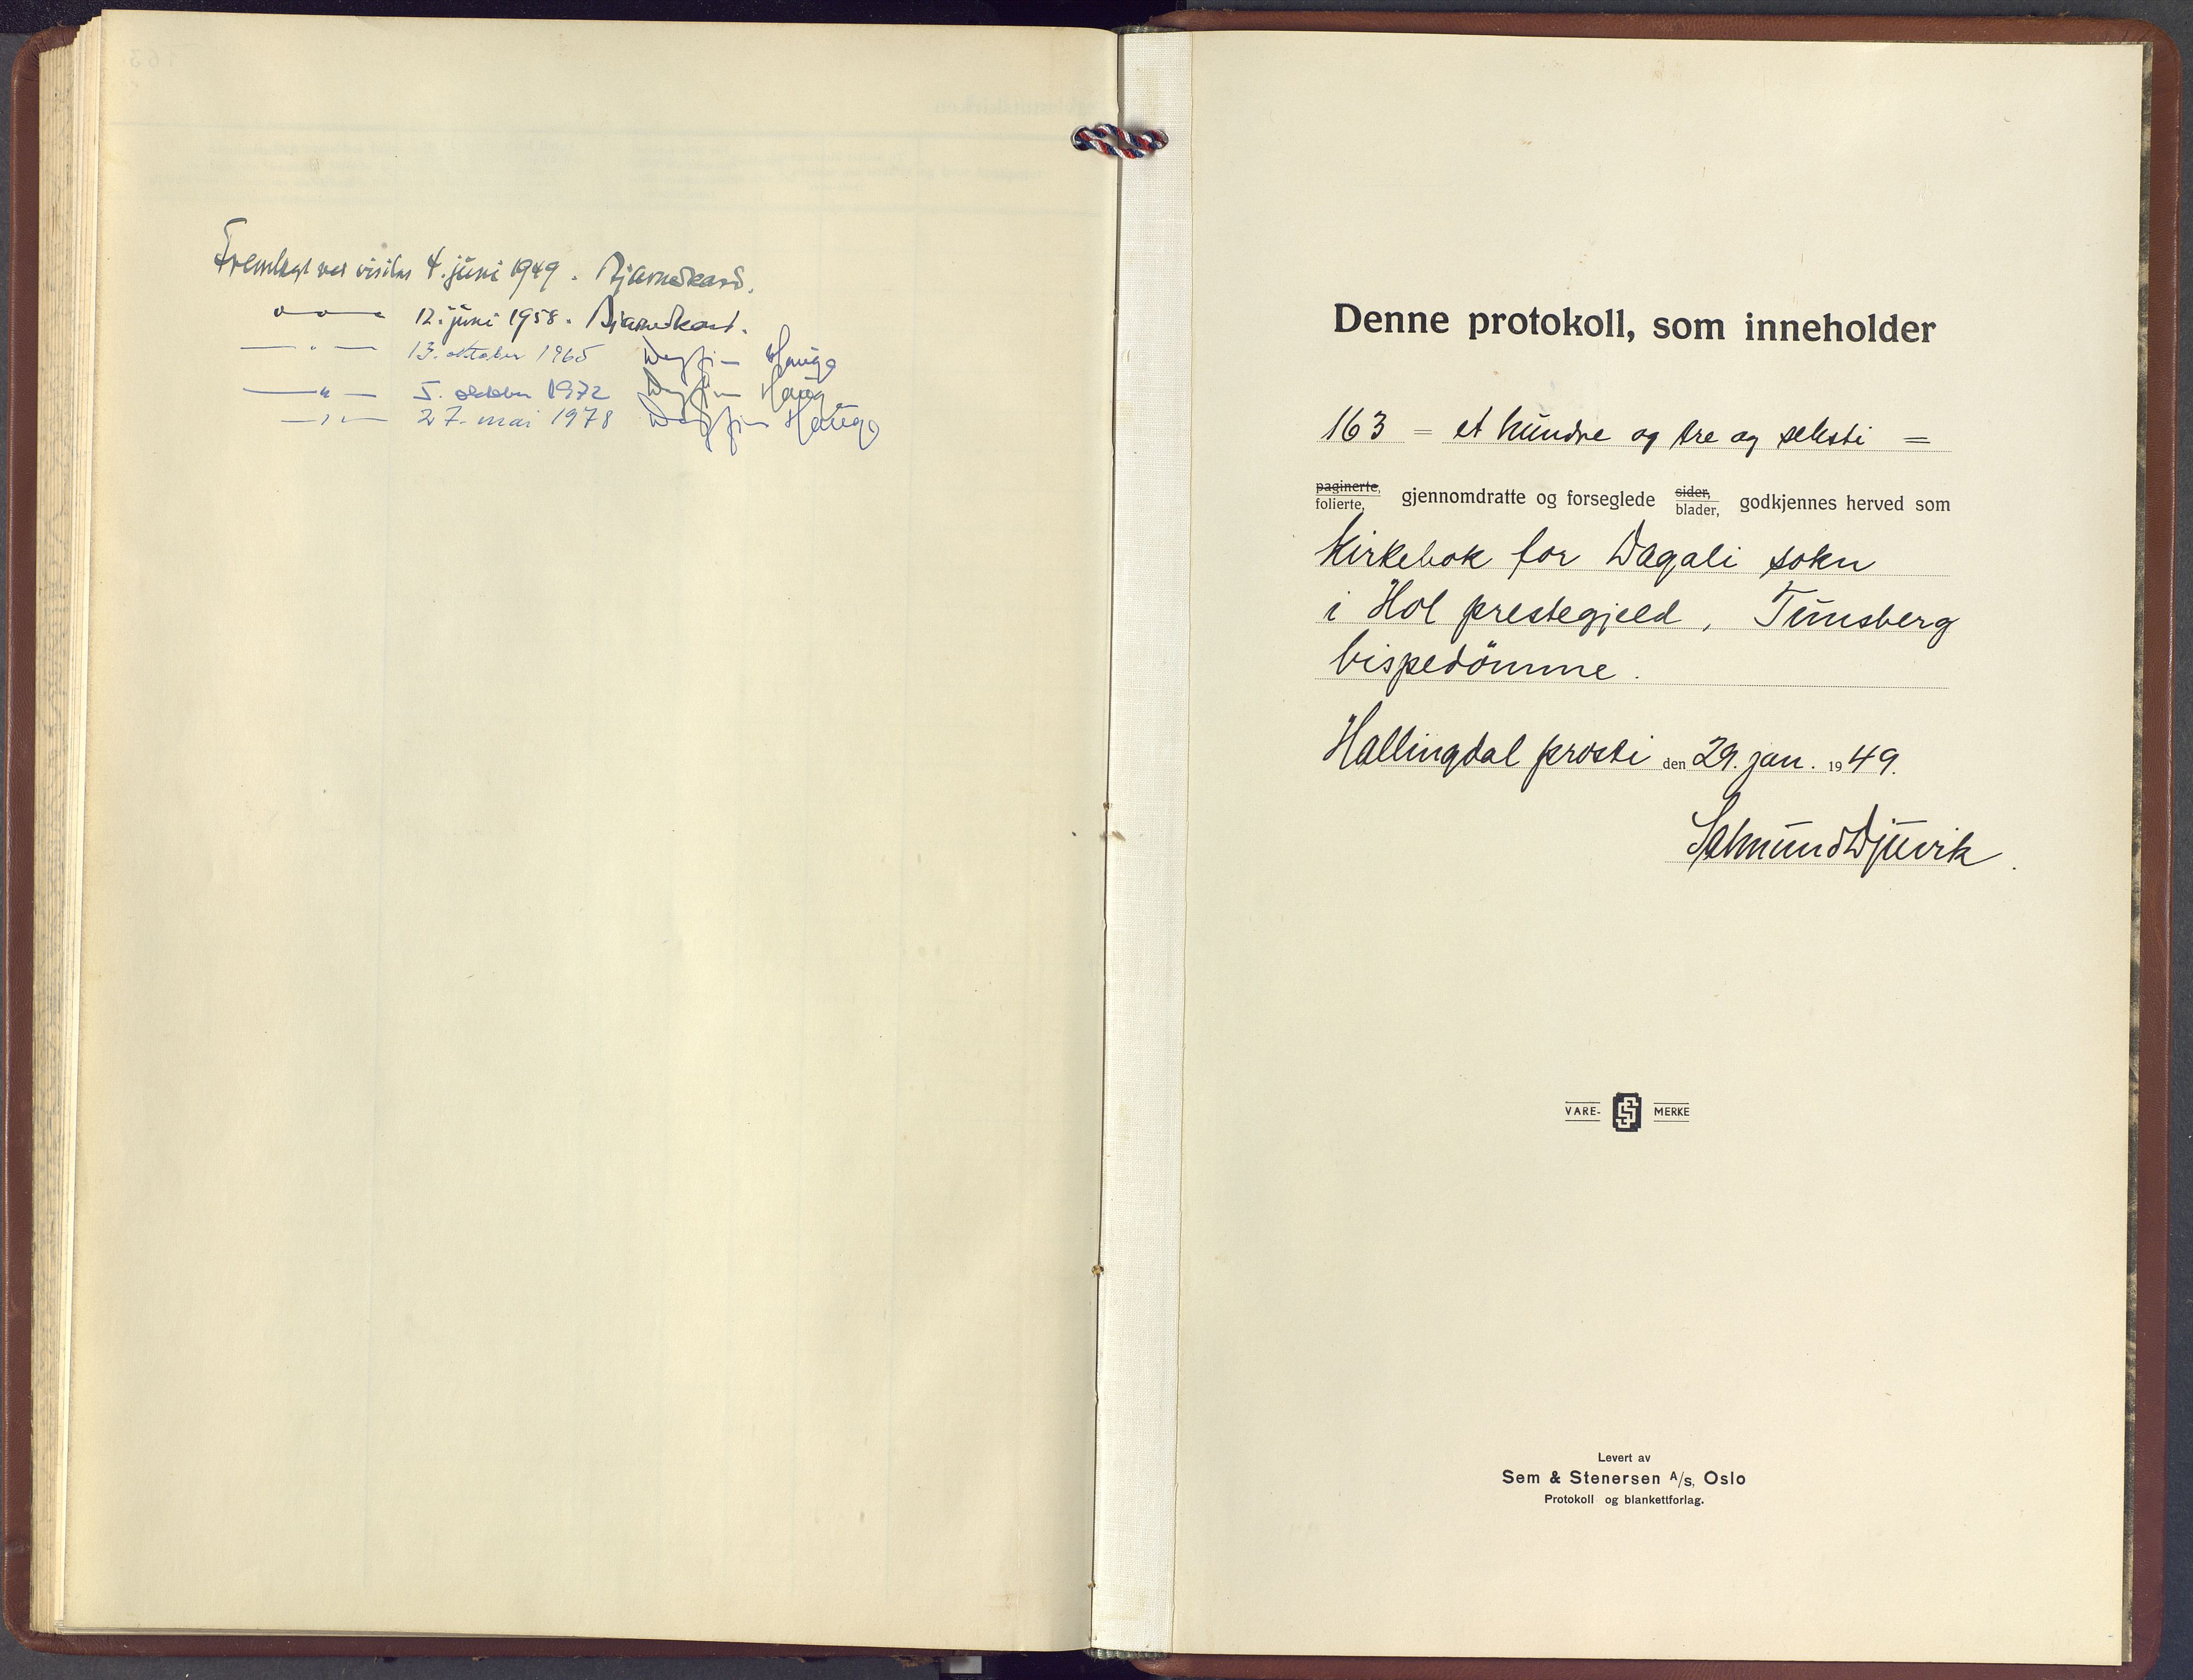 Fremlagt ved visitas 4. juni 1949. Bjarne Skard.
— " — 12. juni 1958. Bjarne Skard.
— " — 13. oktober 1965 Dagfinn Hauge
— " — 5. oktober 1972 Dagfinn Hauge
— " — 27. mai 1978 Dagfinn Hauge
Denne protokoll, som inneholder
163 = et hundre og tre og seksti =
paginerte, folierte, gjennomdratte og forseglede sider, blader, godkjennes herved som
kirkebok for Dagali sokn
i Hol prestegjeld, Tunsberg
bispedömme.
Hallingdal prosti den 29. jan. 1949.
Salmund Djuvik.
VARE- MERKE
Levert av
Sem & Stenersen A/s, Oslo
Protokoll og blankettforlag.